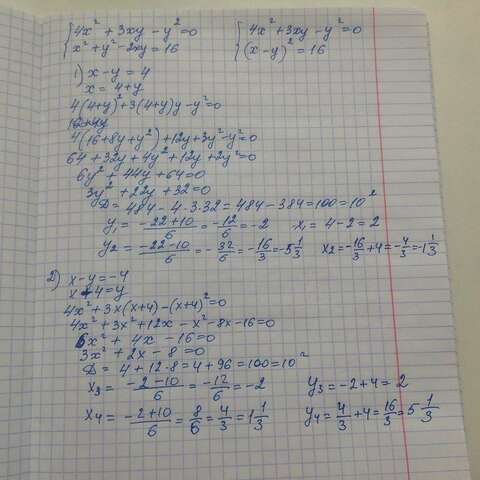 {4x² + 3xy - y² = 0 {4x² + 3xy - y² = 0
{x² + y² - 2xy = 16 {(x-y)² = 16
1) x - y = 4
x = 4+y
4(4+y)² + 3(4+y)y - y² = 0
4(16+8y+y²) + 12y + 3y² - y² = 0
64 + 32y + 4y² + 12y + 2y² = 0
6y² + 44y + 64 = 0
3y² + 22y + 32 = 0
D = 484 - 4·3·32 = 484 - 384 = 100 = 10²
y₁ = (-22+10)/6 = -12/6 = -2 x₁ = 4-2 = 2
y₂ = (-22-10)/6 = -32/6 = -16/3 = -5 1/3 x₂ = -16/3 + 4 = -4/3 = -1 1/3
2) x - y = -4
x + 4 = y
4x² + 3x(x+4) - (x+4)² = 0
4x² + 3x² + 12x - x² - 8x - 16 = 0
6x² + 4x - 16 = 0
3x² + 2x - 8 = 0
D = 4 + 12·8 = 4 + 96 = 100 = 10²
x₃ = (-2-10)/6 = -12/6 = -2 y₃ = -2+4 = 2
x₄ = (-2+10)/6 = 8/6 = 4/3 = 1 1/3 y₄ = 4/3 + 4 = 16/3 = 5 1/3